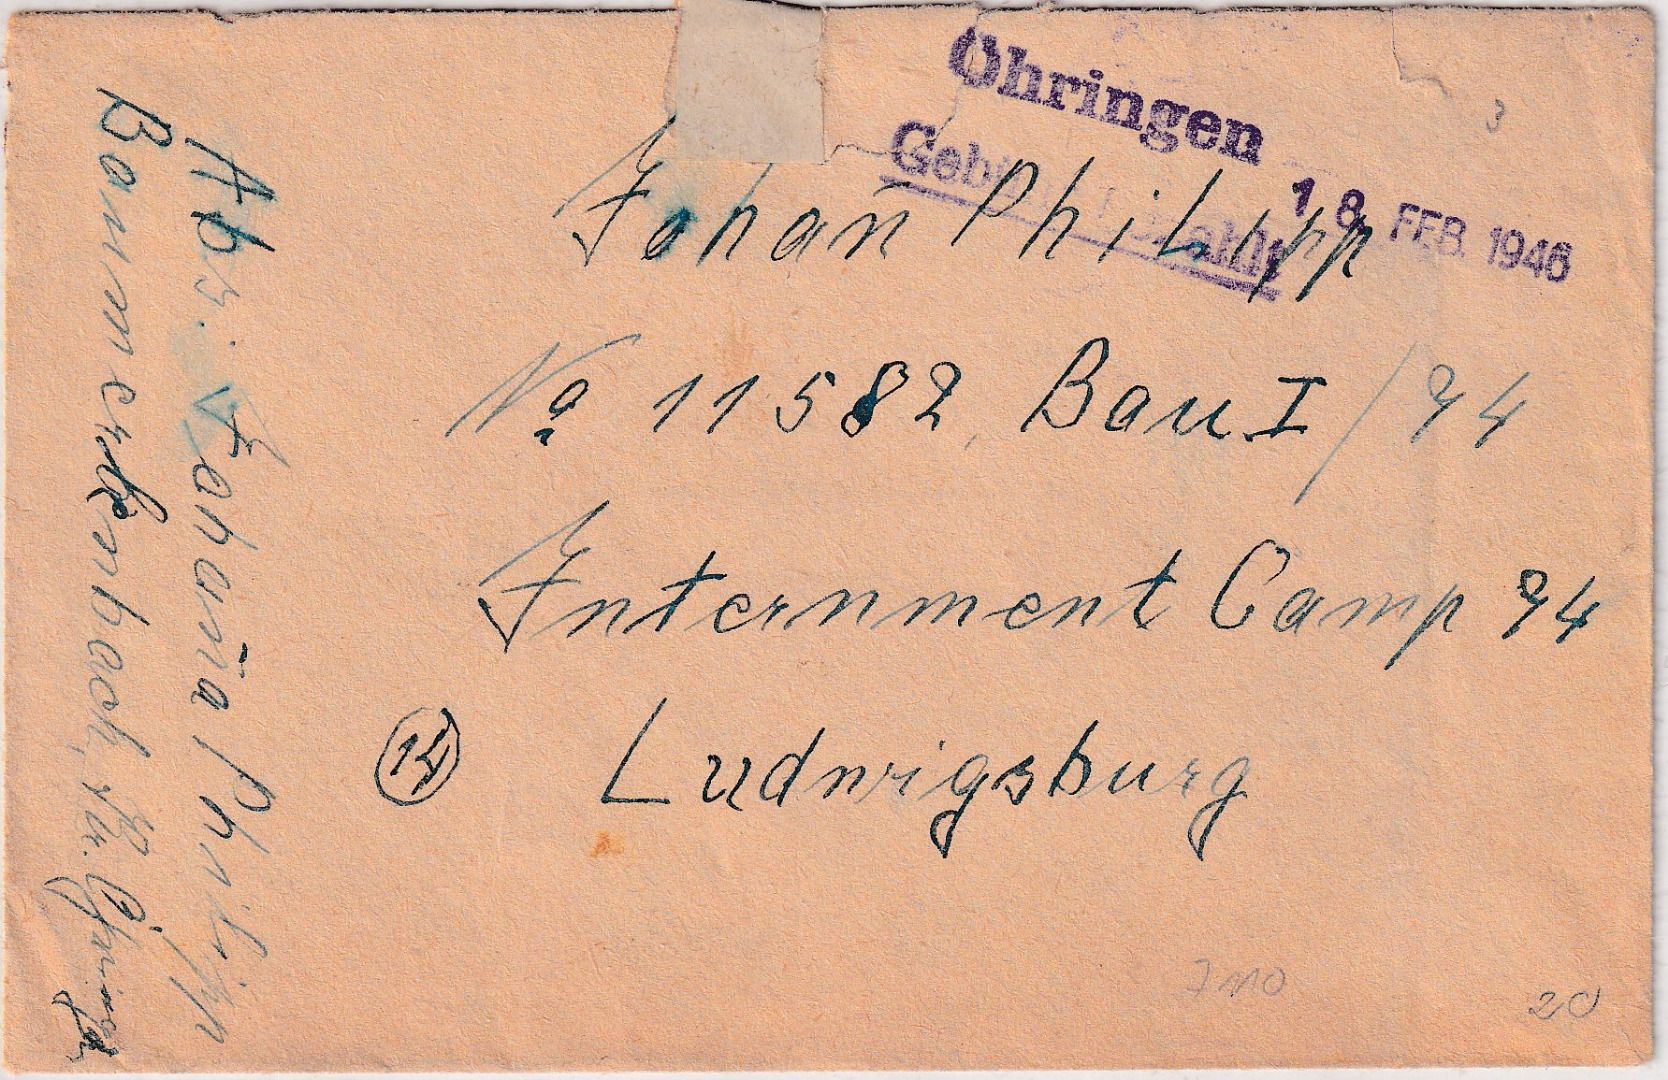 Öhringen
Gebühr bezahlt
18. FEB. 1946
3
Johan̄ Philipp
No 11582, Bau I/74
Internment Camp 74
14 Ludwigsburg
Abs. Johan̄a Philipp
Baumerlenbach, Kr. Öhringen
20